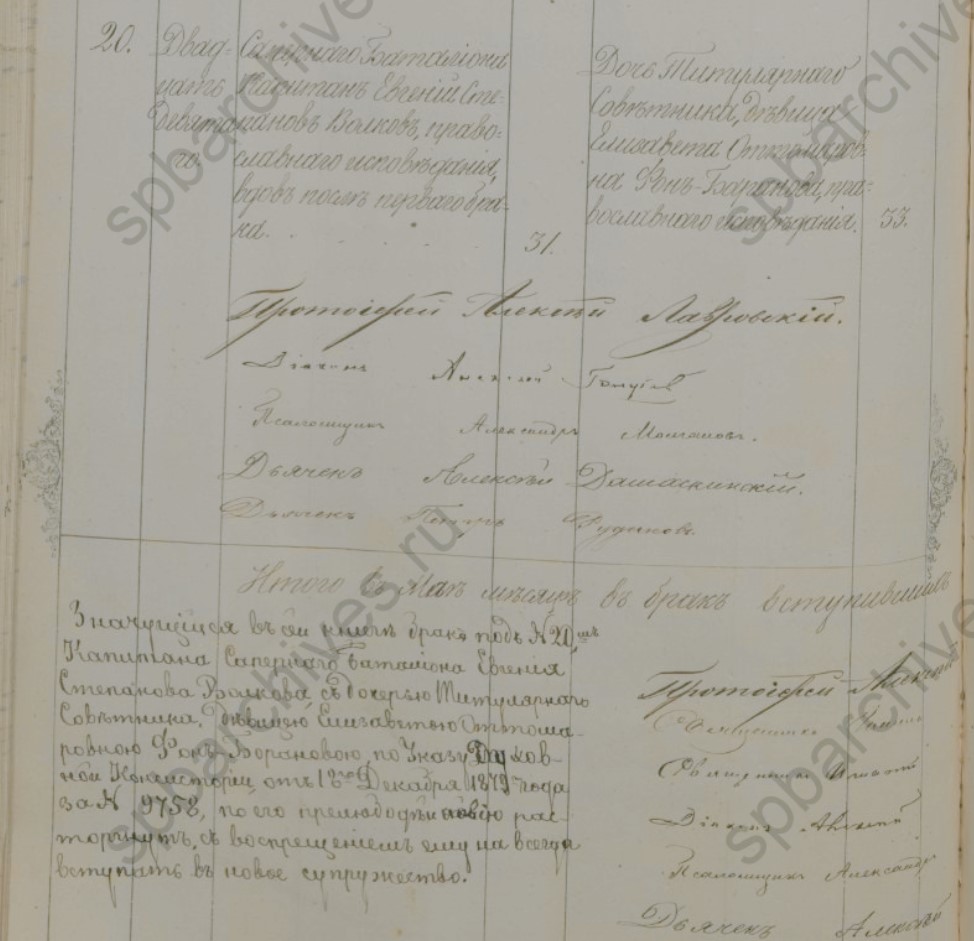 20.
Двад-
цать
девята-
го.
Сапернаго Баталіона
Капитанъ Евгеній Сте-
пановъ Волковъ, право-
славнаго исповѣданія,
вдовъ послѣ перваго бра-
ка.
31.
Дочь Титулярнаго
Совѣтника, дѣвица
Елизавета Оттомаров-
на Фонъ-Баранова, пра-
вославнаго исповѣданія.
33.
Протоіерей Алексѣй Лавровскій.
Діаконъ Алексѣй
Псаломщикъ Александръ Молчановъ.
Дьячекъ Алексѣй Дамаскинскій.
Дьячекъ Петръ Рудаковъ.
Итого въ Маѣ мѣсяцѣ въ бракъ вступившихъ
Значущійся въ сей книгѣ бракъ подъ № 20мъ
Капитана Сапернаго баталіона Евгенія
Степанова Волкова, съ дочерью Титулярнаго
Совѣтника, дѣвицею Елизаветою Оттома-
ровною Фонъ-Борановою, по Указу Духов-
ной Консисторіи, отъ 12го Декабря 1879 года
за № 9758, по его прелюбодѣянію рас-
торгнутъ, съ воспрещеніемъ ему на всегда
вступать въ новое супружество.
Протоіерей
Священникъ
Священникъ
Діаконъ Алексѣй
Псаломщикъ Александръ
Дьячекъ Алексѣй
spbarchives.ru